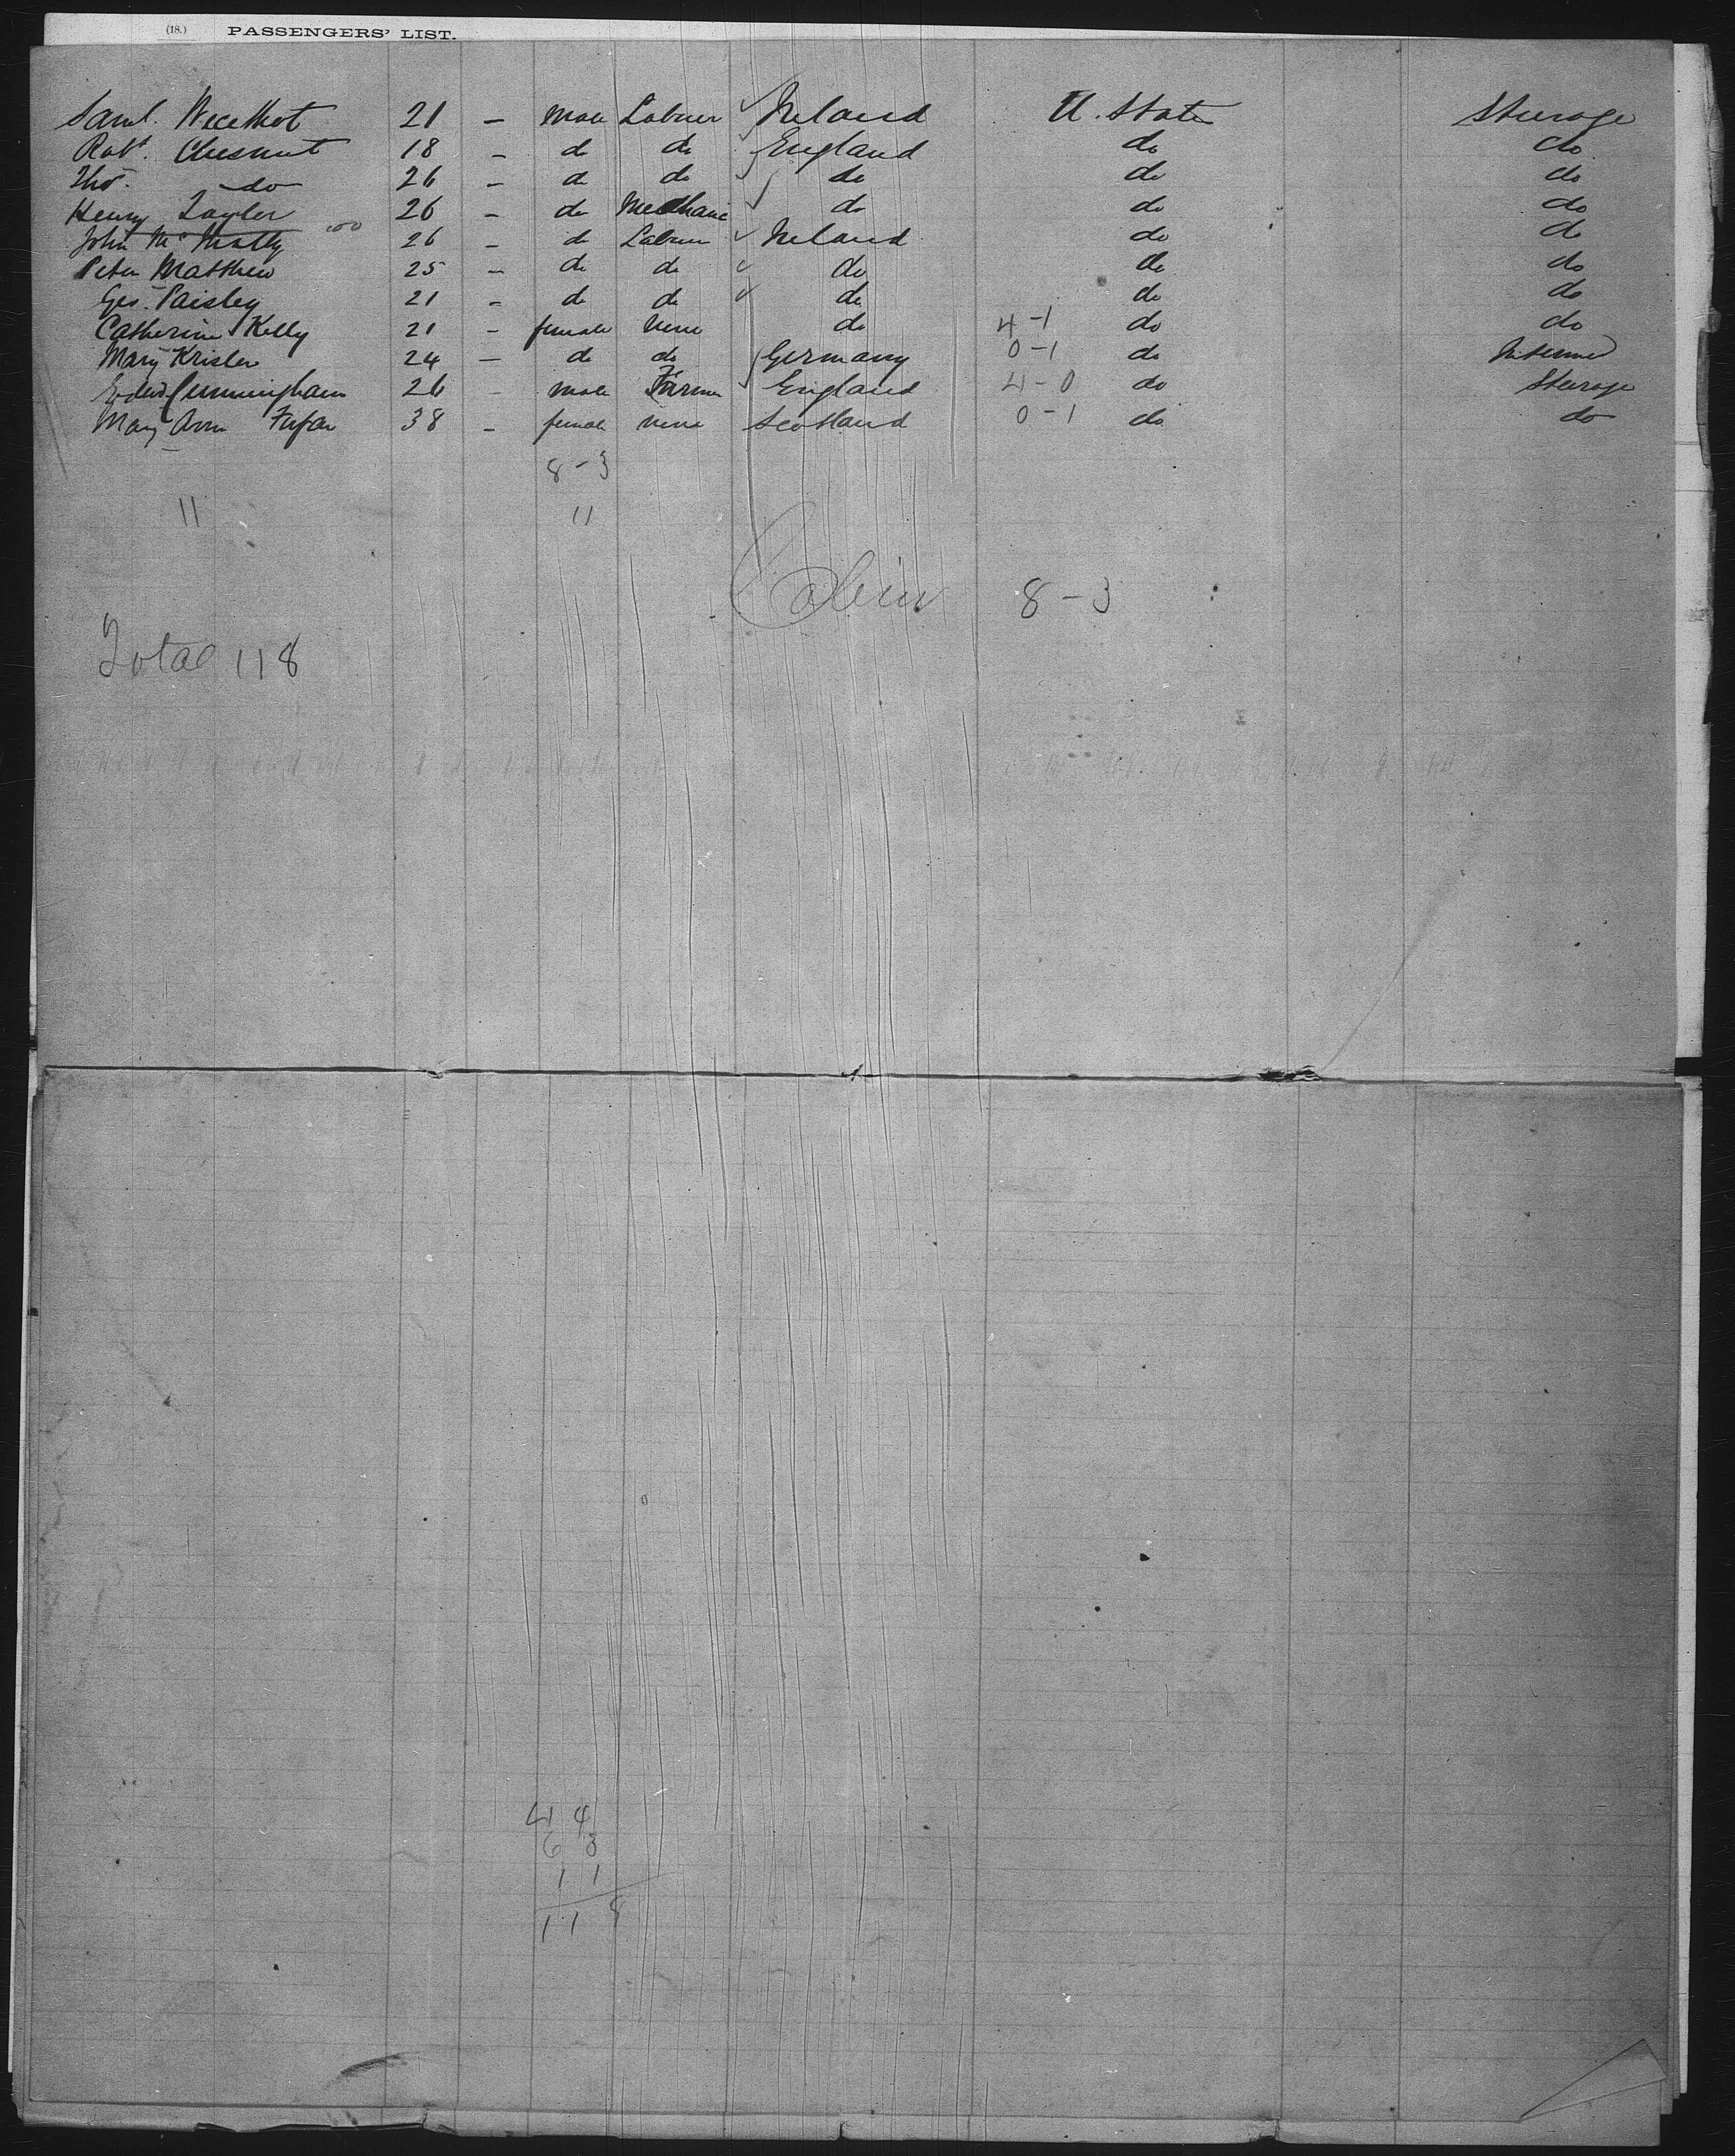 (18.) PASSENGERS' LIST.
Saml. 21 – Male Labour Ireland U. States Steerage
Robt. Chesnut 18 – do do England do do
Thos. do 26 – do do do do do
Henry Taylor 26 – do Mechanic do do do
John McNally 26 – do Labour Ireland do do
Peter Matthew 25 – do do do do do
Geo. Paisley 21 – do do do do do
Catherine Kelly 21 – female None do 4-1 do do
Mary Krisler 24 – do do Germany 0-1 do
Edwd Cunningham 26 – male Farmer England 4-0 do Steerage
Mary Ann 38 – female None Scotland 0-1 do do
8-3
11 11
Cabin 8-3
Total 118
44
63
11
118